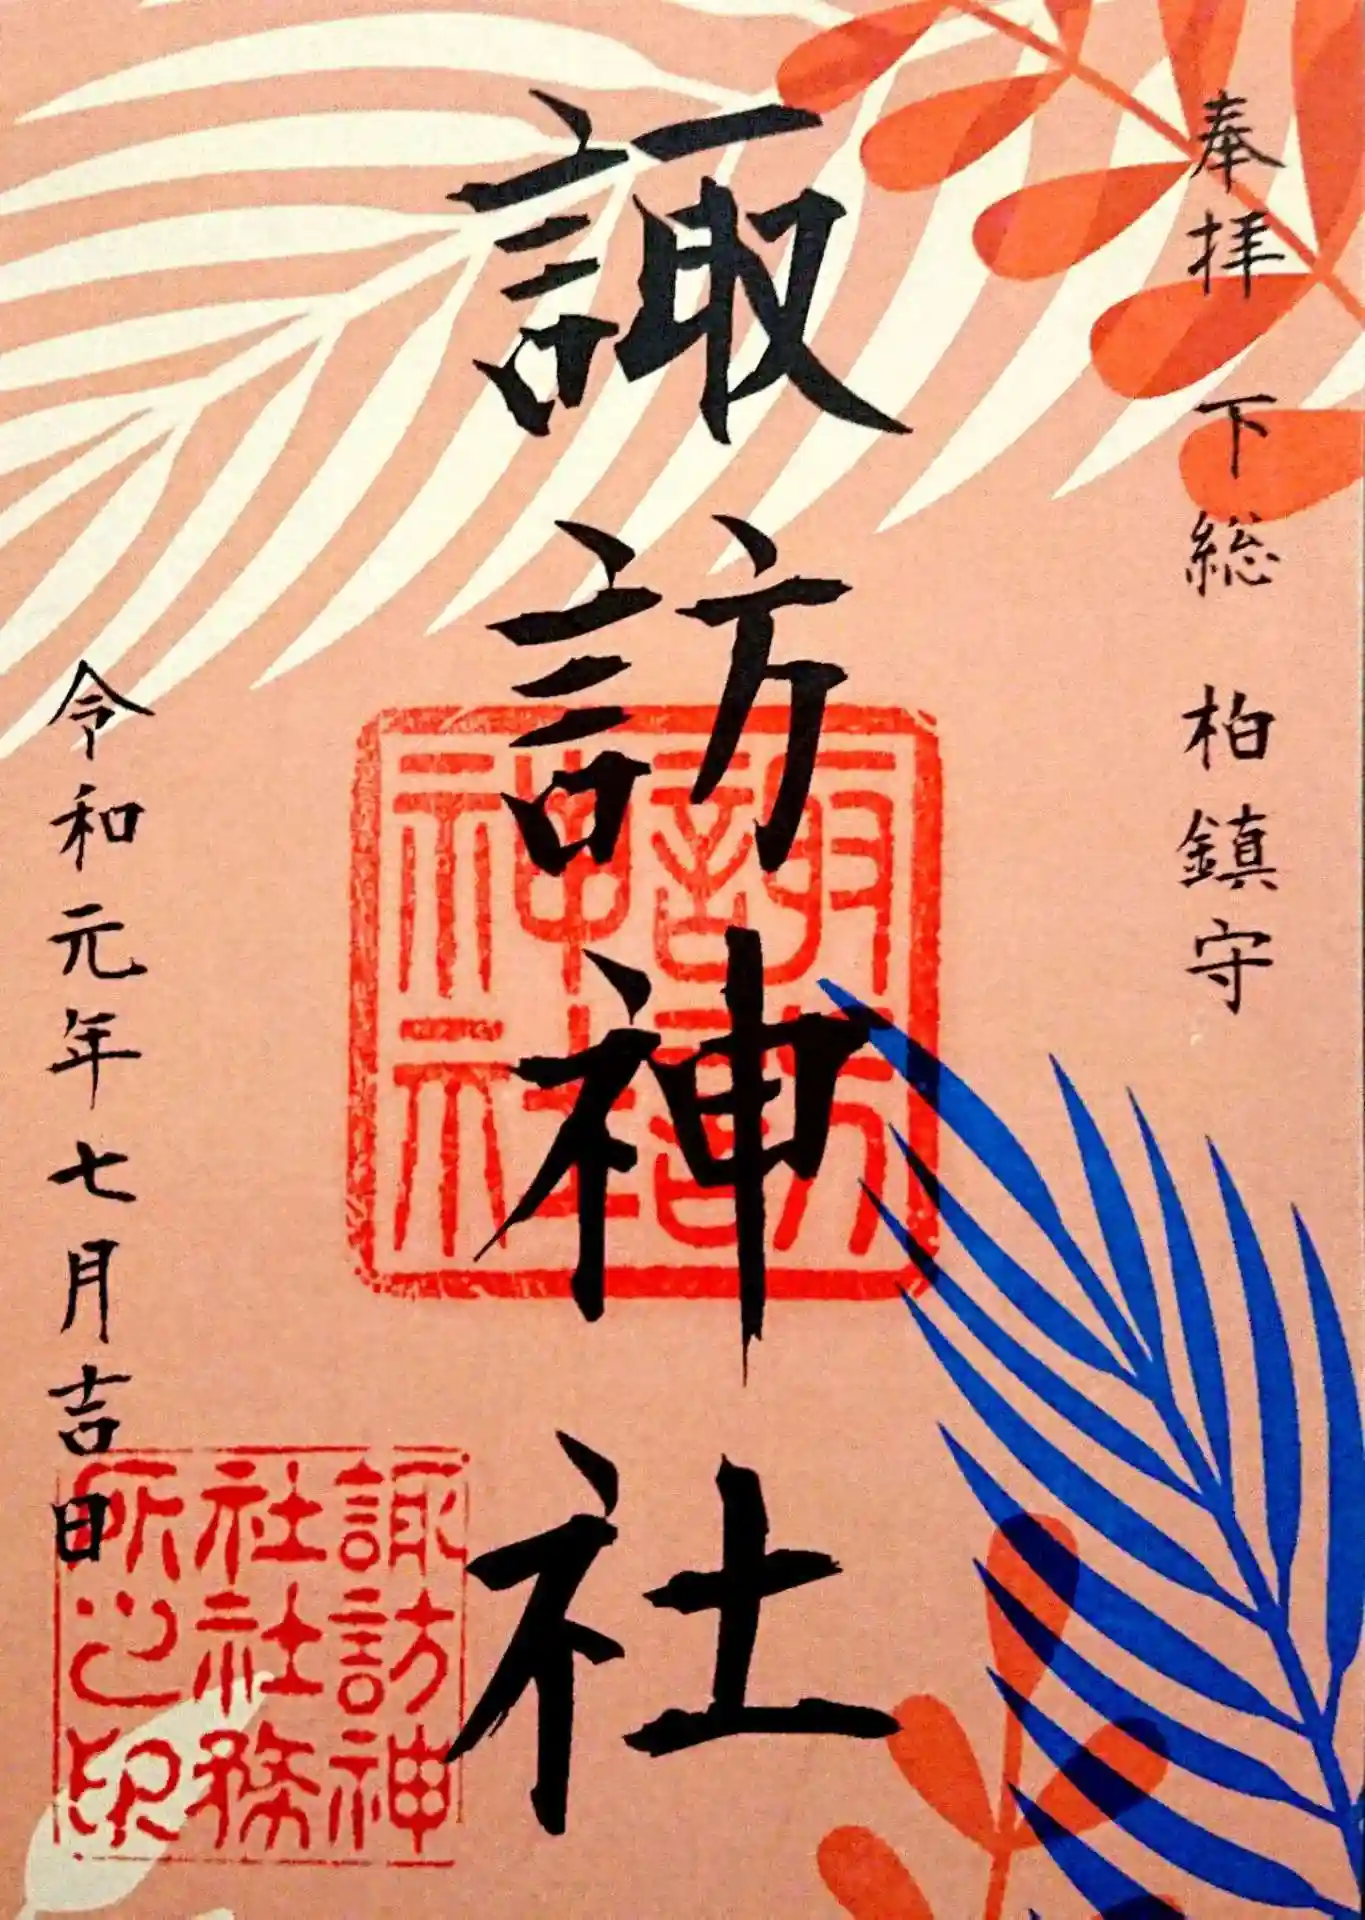 奉拝 下総 柏鎮守
諏訪神社
諏訪
神社
令和元年七月吉日
諏訪神
社社務
所之印